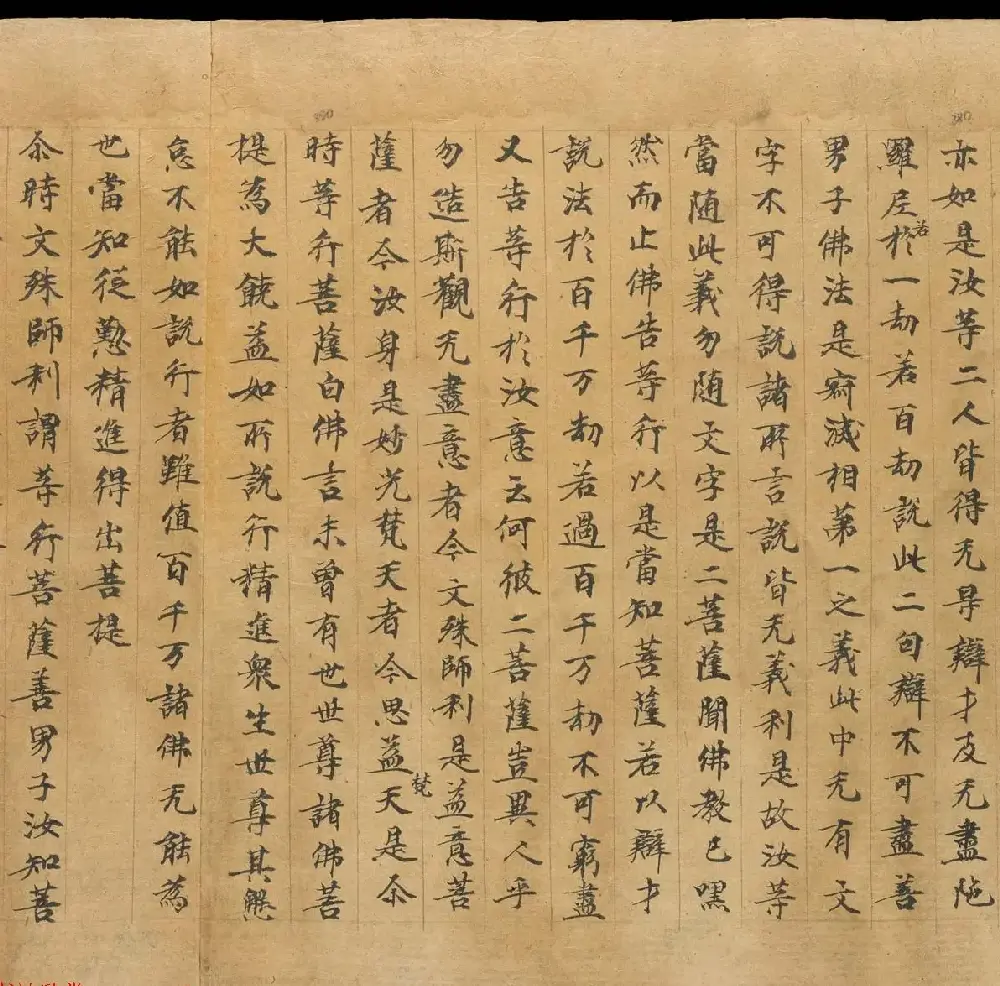 亦如是汝等二人皆得无㝵辯才及无盡陁
羅尼若於一劫若百劫說此二句辯不可盡善
男子佛法是寂滅相第一之義此中无有文
字不可得說諸所言說皆无義利是故汝等
當随此義勿随文字是二菩薩聞佛教已嘿
然而止佛告等行以是當知菩薩若以辯才
說法於百千万劫若過百千万劫不可窮盡
又告等行於汝意云何彼二菩薩豈異人乎
勿造斯觀无盡意者今文殊師利是益意菩
薩者今汝身是妙光梵天者今思益梵天是尒
時等行菩薩白佛言未曾有世世尊諸佛菩
提為大饒益如所說行精進衆生世尊其懈
怠不能如說行者雖值百千万諸佛无能為
也當知從懃精進得出菩提
尒時文殊師利謂等行菩薩善男子汝知菩